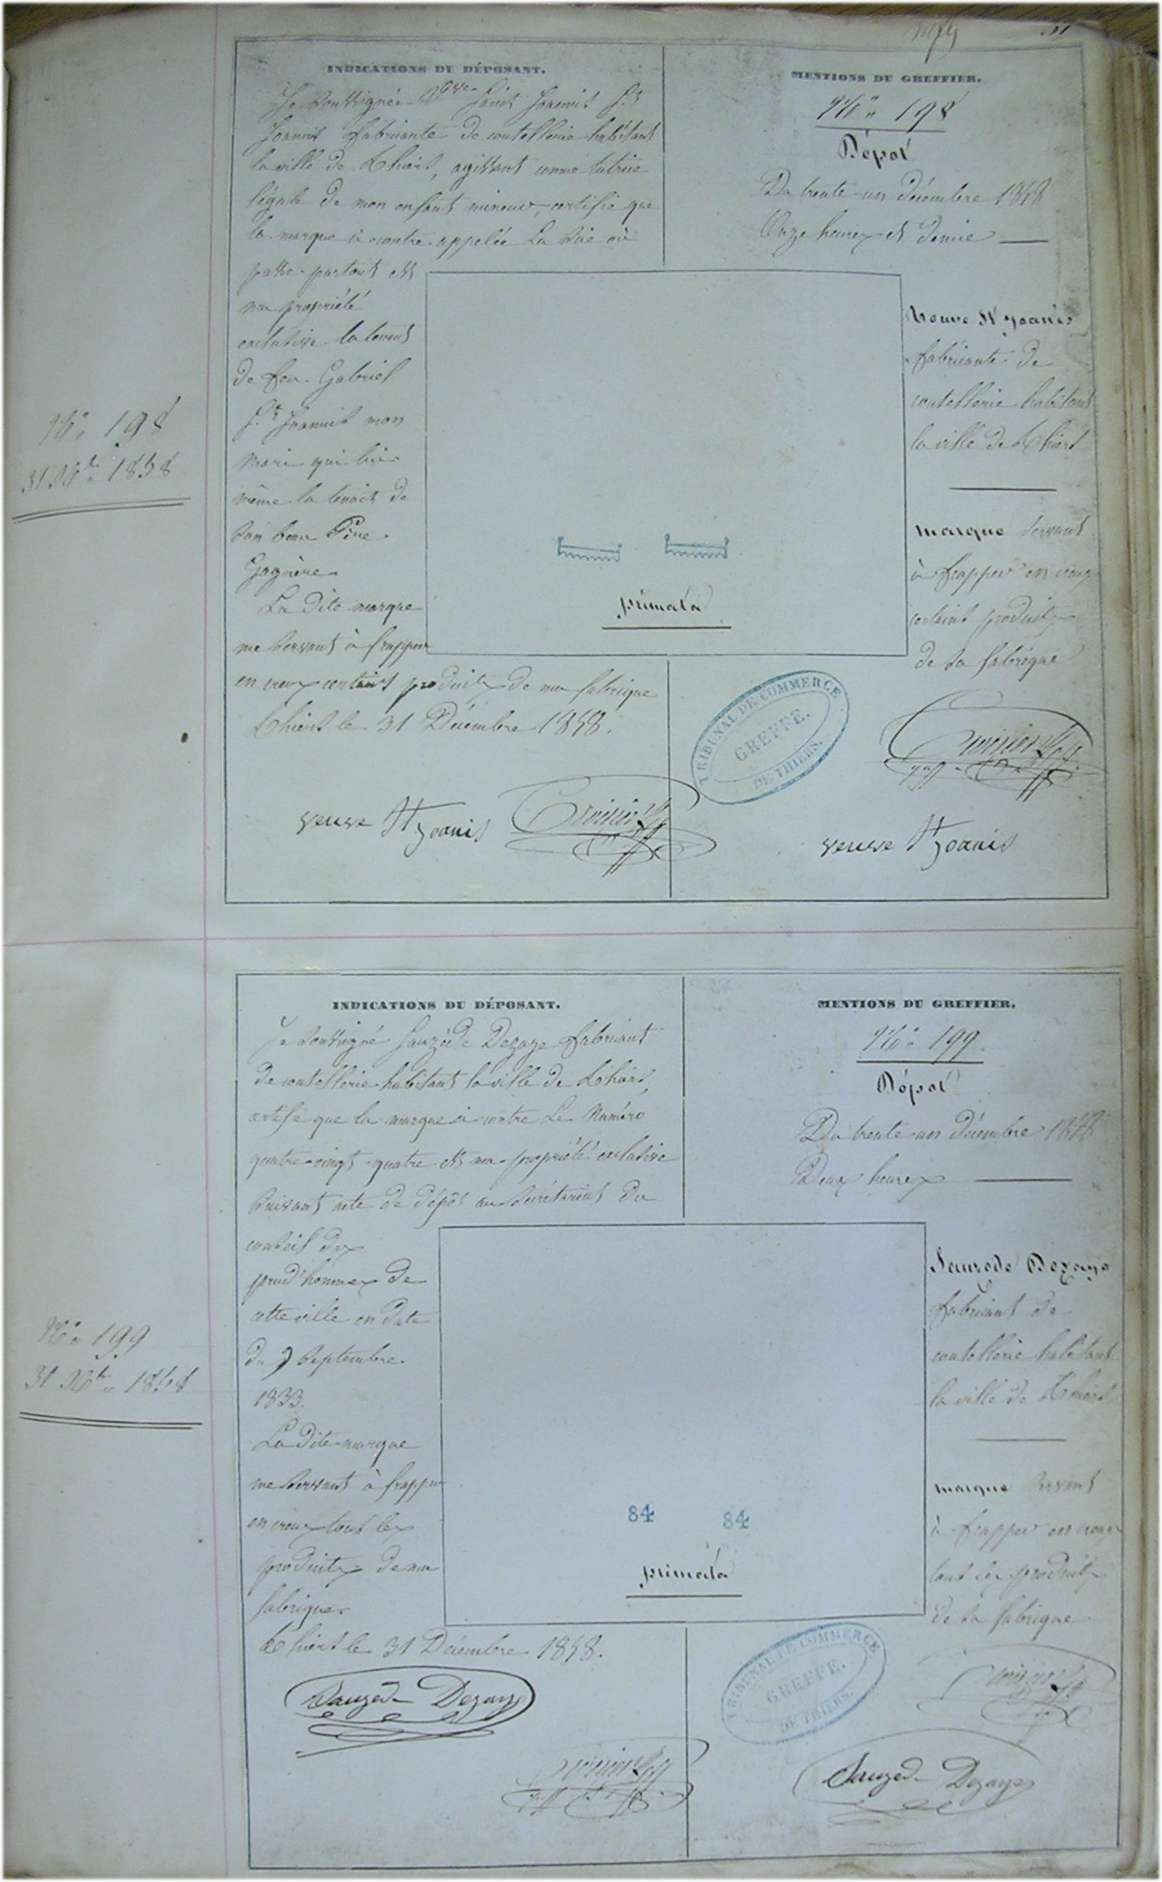 INDICATIONS DU DÉPOSANT.
Je soussignée Vve Saint Joannis St
Joannis fabriante de coutellerie habitant
la ville de Thiers, agissant comme tutrice
légale de mon enfant mineur, certifie que
la marque ci contre appelée La Scie ou
passe-partout est
ma propriété
exclusive la tenant
de feu Gabriel
St Joannis mon
mari qui lui
même la tenait de
son beau Père
Gagnère
La dite marque
me servant à frapper
en creux certains produits de ma fabrique
Thiers le 31 Décembre 1858.
veuve St joanis
MENTIONS DU GREFFIER.
No 198
Dépot
Du trente-un décembre 1858
Onze heures et demie
Veuve St Joanis
fabricante de
coutellerie habitant
la ville de Thiers
marque servant
à frapper en creux
certains produits
de sa fabrique
primata
TRIBUNAL DE COMMERCE
GREFFE.
DE THIERS.
veuve St joanis
No 198
31 Xbre 1858
INDICATIONS DU DÉPOSANT.
Je soussigné Sauzède Dezaye fabricant
de coutellerie habitant la ville de Thiers,
certifie que la marque ci contre Le Numéro
quatre-vingt-quatre est ma propriété exclusive
suivant acte de dépôt au secrétariat du
conseil des
prud'hommes de
cette ville en date
du 7 Septembre
1833.
La dite marque
me servant à frapper
en creux tout les
produits de ma
fabrique
Thiers le 31 Décembre 1858.
Sauzede Dezaye
MENTIONS DU GREFFIER.
No 199
Dépot
Du trente-un décembre 1858
Deux heures
Sauzede Dezaye
fabricant de
coutellerie habitant
la ville de Thiers
marque servant
à frapper en creux
tout les produits
de sa fabrique
84 84
primata
TRIBUNAL DE COMMERCE
GREFFE.
DE THIERS.
Sauzede Dezaye
No 199
31 Xbre 1858